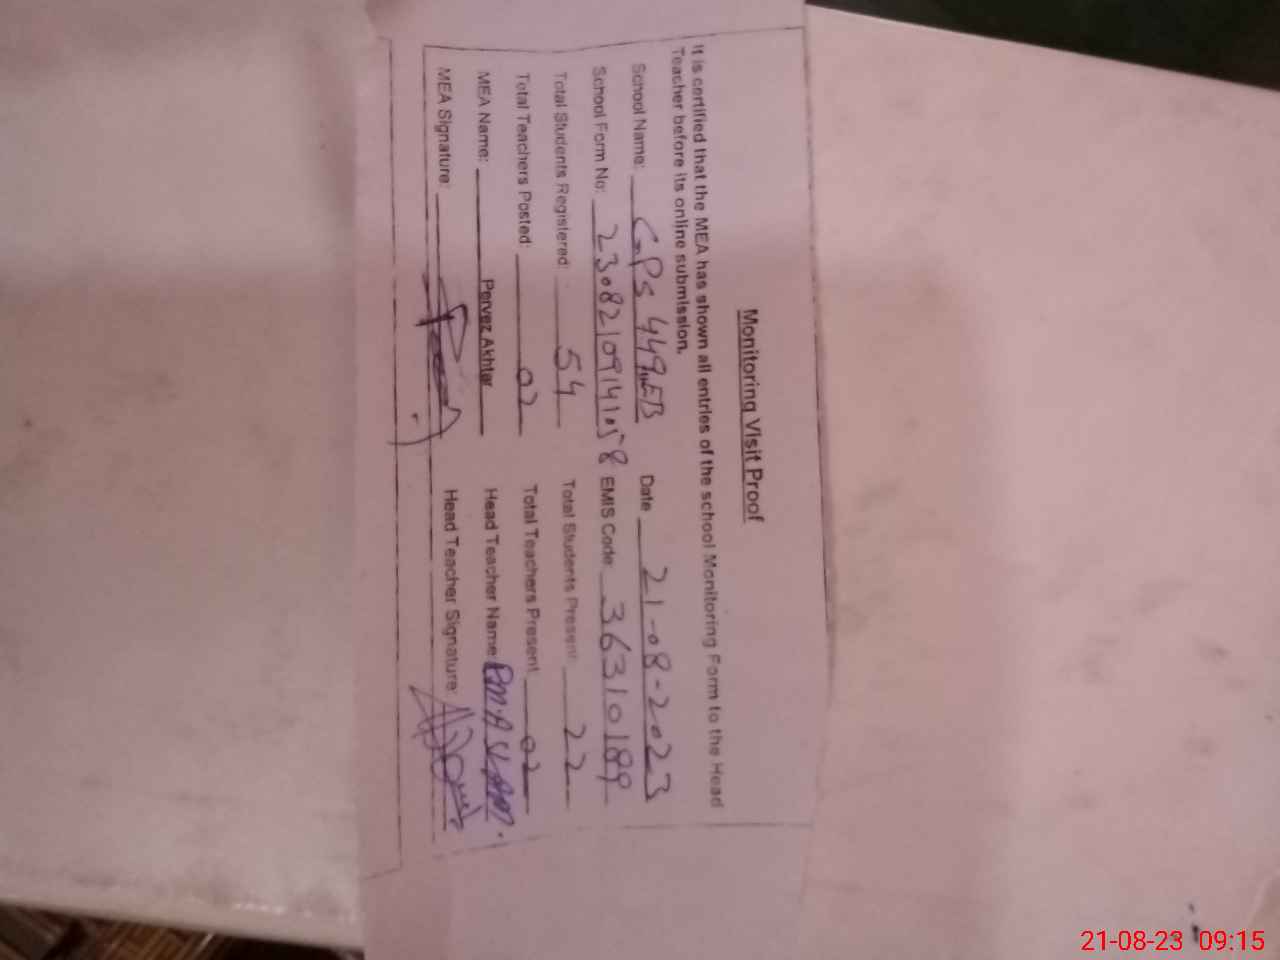 Monitoring Visit Proof
It is certified that the MEA has shown all entries of the school Monitoring Form to the Head
Teacher before its online submission.
School Name: GPS 449/EB Date 21-08-2023
School Form No: 23082109141058 EMIS Code: 36310189
Total Students Registered: 54 Total Students Present: 22
Total Teachers Posted: 02 Total Teachers Present 02
MEA Name: Pervez Akhter Head Teacher Name:
MEA Signature: Head Teacher Signature:
21-08-23 09:15